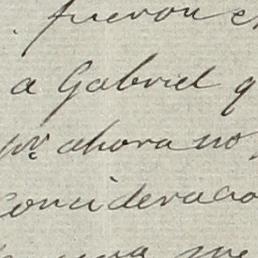 fueron
a Gabriel q
pr. ahora no
consideracio